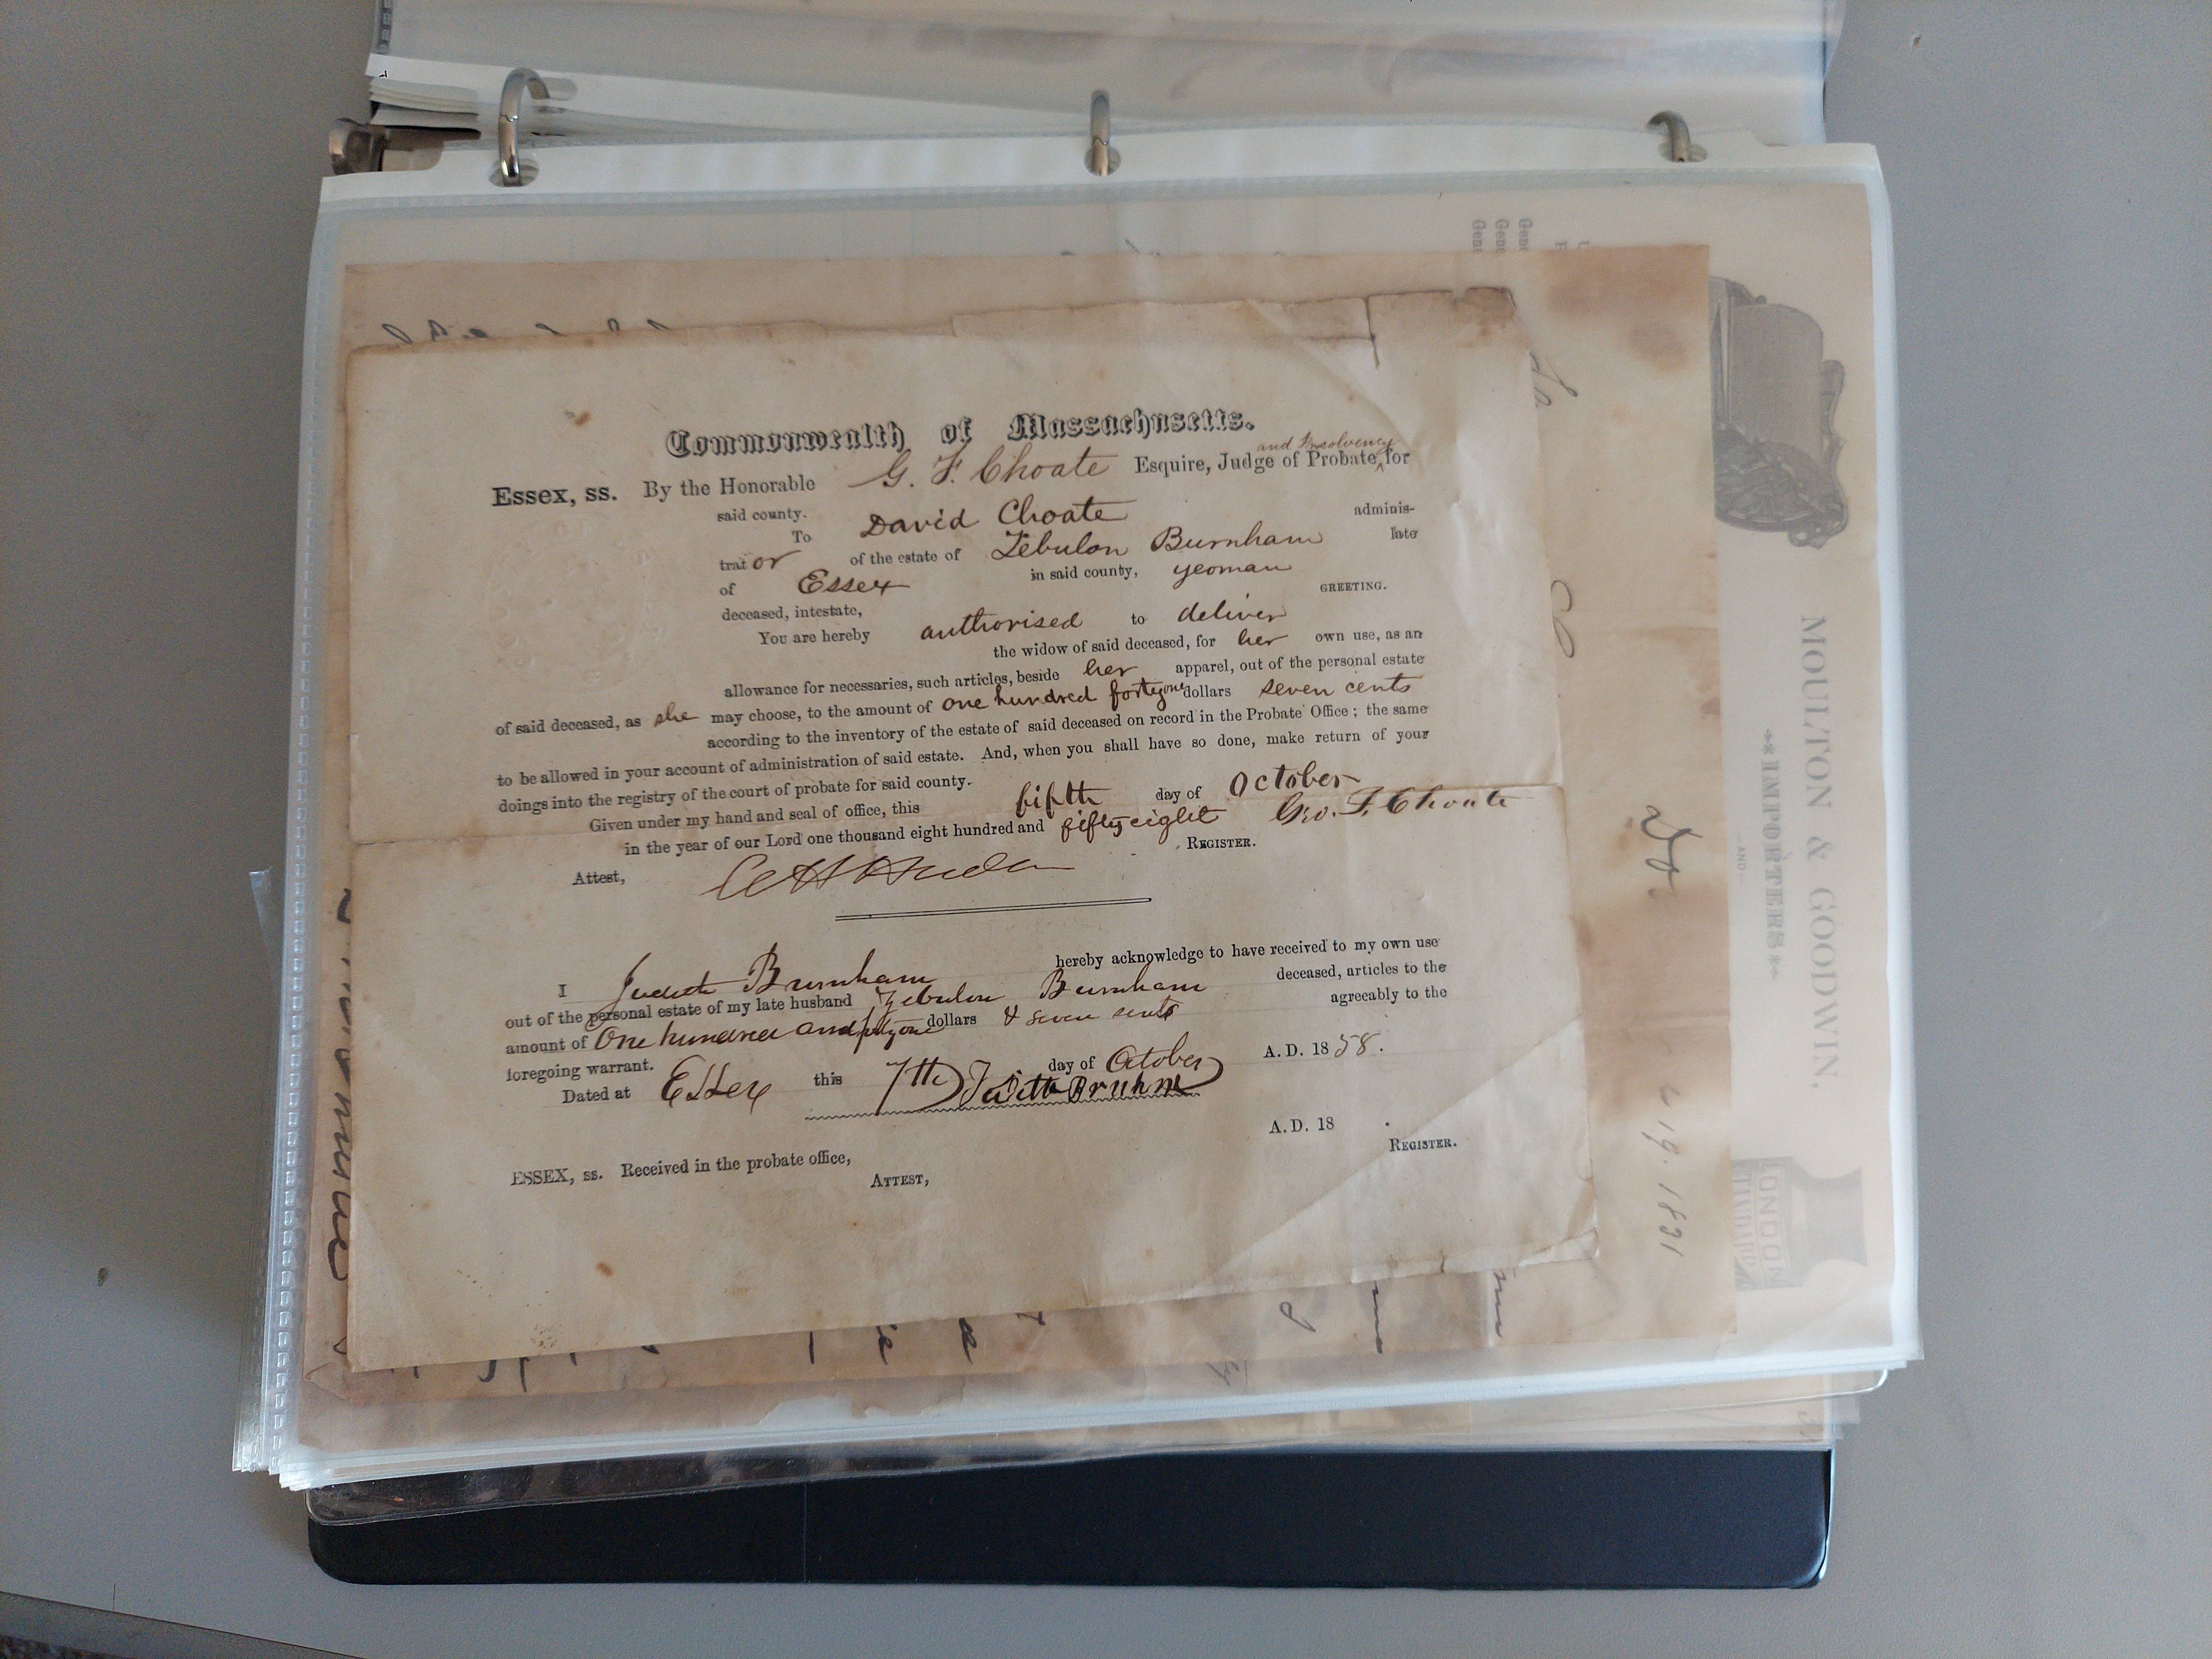 Commonwealth of Massachusetts.
and Insolvency
Essex, ss. By the Honorable G. F. Choate Esquire, Judge of Probate ^ for
said county.
To David Choate adminis-
trator of the estate of Zebulon Burnham late
of Essex in said county, yeoman
deceased, intestate, GREETING.
You are hereby authorised to deliver
the widow of said deceased, for her own use, as an
allowance for necessaries, such articles, beside her apparel, out of the personal estate
of said deceased, as she may choose, to the amount of one hundred fortyone dollars seven cents
according to the inventory of the estate of said deceased on record in the Probate Office; the same
to be allowed in your account of administration of said estate. And, when you shall have so done, make return of your
doings into the registry of the court of probate for said county.
Given under my hand and seal of office, this fifth day of October
in the year of our Lord one thousand eight hundred and fiftyeight Geo. F. Choate
Attest, REGISTER.
I Judith Burnham hereby acknowledge to have received to my own use
out of the personal estate of my late husband Zebulon Burnham deceased, articles to the
amount of One hundred and fortyone dollars & seven cents agreeably to the
foregoing warrant.
Dated at Essex this 7th day of October A. D. 1858.
A. D. 18 .
ESSEX, ss. Received in the probate office,
ATTEST, REGISTER.
MOULTON & GOODWIN,
AND
IMPORTERS
19. 1831